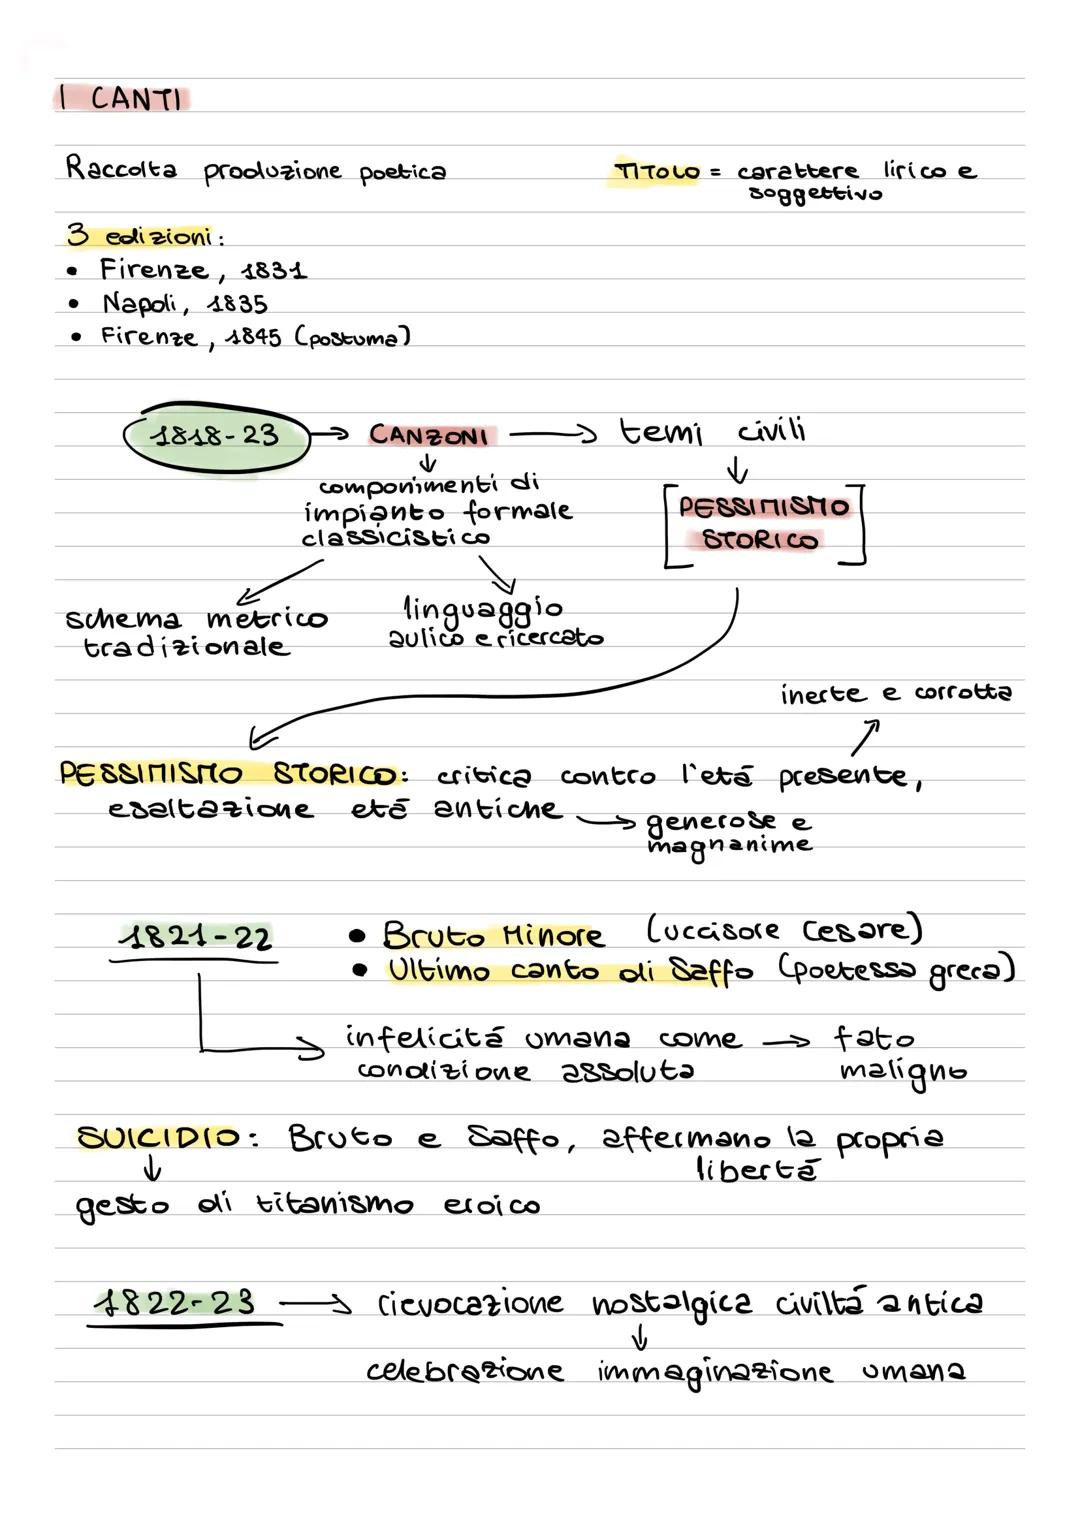 I CANTI
Raccolta produzione poetica
TITOLO = carattere lirico e
soggettivo
3 edizioni:
• Firenze, 1831
• Napoli, 1835
• Firenze, 1845 (postuma)
1818-23 → CANZONI → temi civili
↓
componimenti di
impianto formale
classicistico
↓
[PESSIMISMO
STORICO]
schema metrico
tradizionale
linguaggio
aulico e ricercato
inerte e corrotta
PESSIMISMO STORICO: critica contro l'etá presente,
esaltazione etá antiche → generose e
magnanime
1821-22
• Bruto Minore (uccisore Cesare)
• Ultimo canto di Saffo (poetessa greca)
infelicitá umana come → fato
condizione assoluta maligno
SUICIDIO: Bruto e Saffo, affermano la propria
libertá
↓
gesto di titanismo eroico
1822-23 → rievocazione nostalgica civiltá antica
↓
celebrazione immaginazione umana